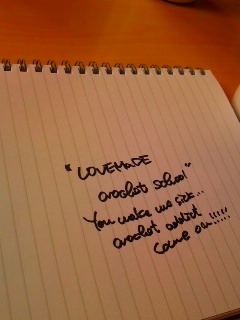 "LOVEMADE
crochet school"
You make me sick...
crochet addict
come on!!!!!